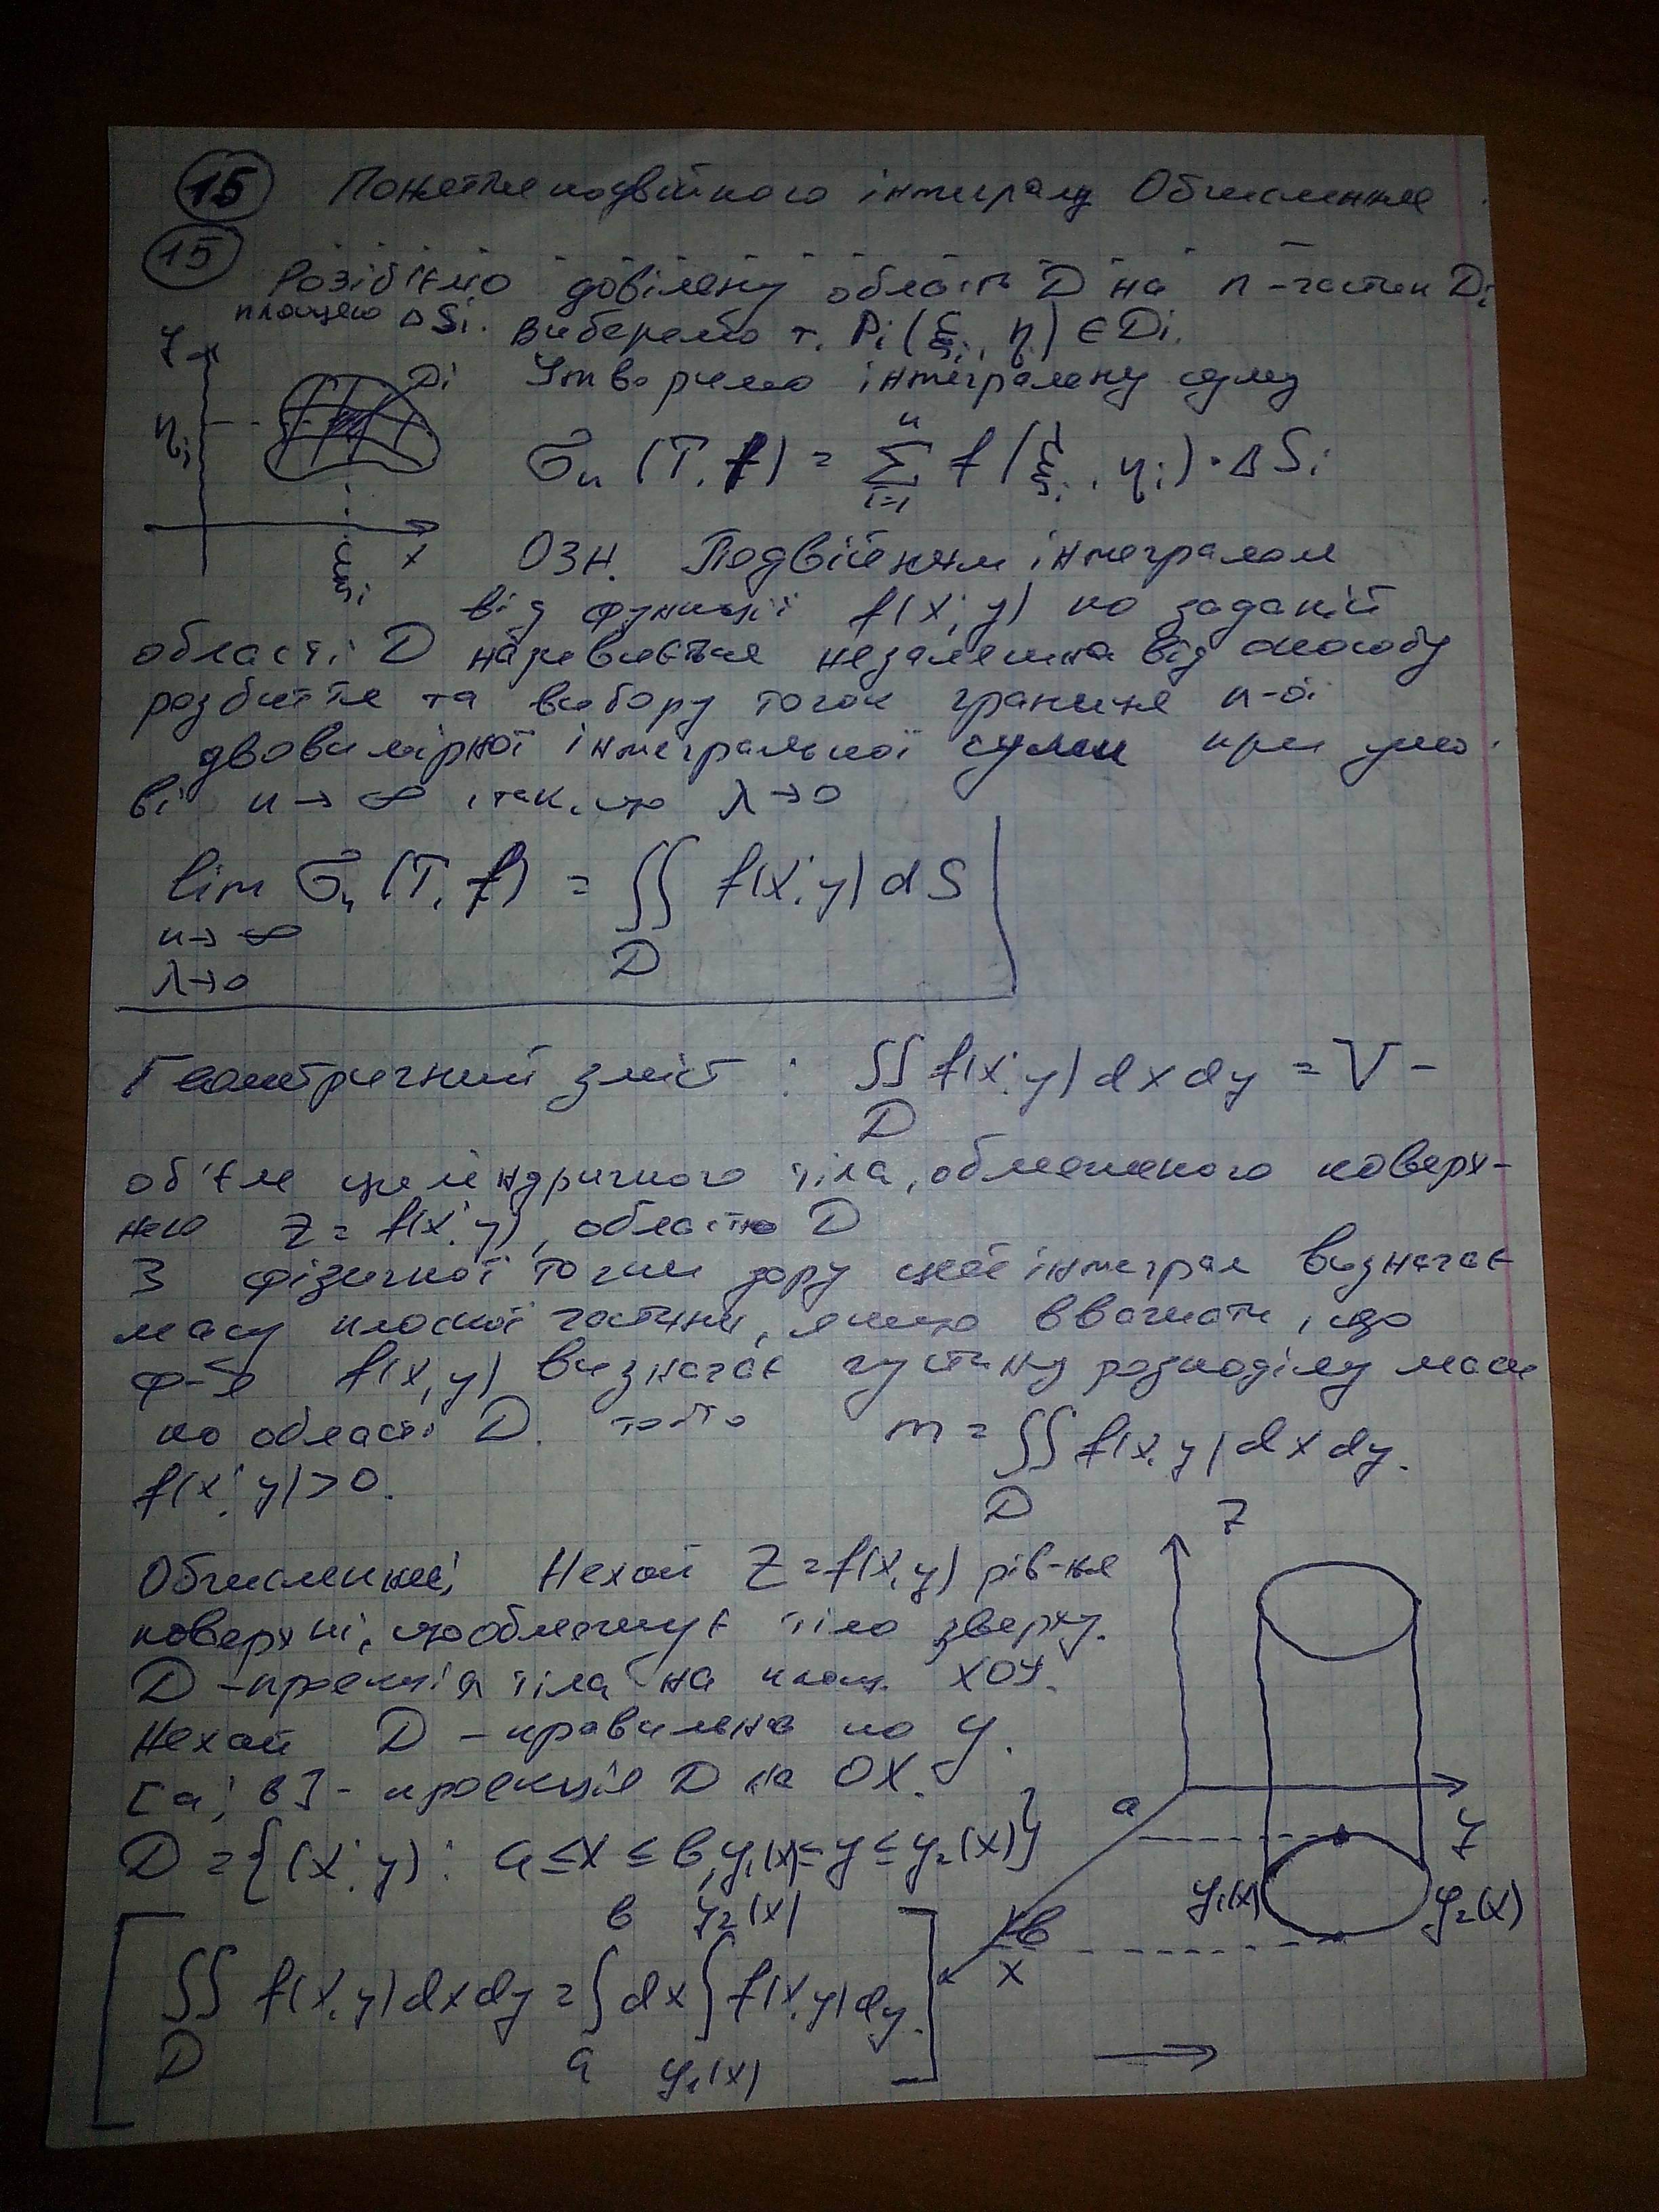 15 Поняття подвійного інтегралу Обчислення
15
Розіб'ємо довільну область D на n-частин Di
площею ΔSi. Виберемо т. Pi(ξi, ηi) ∈ Di.
y Di Утворимо інтегральну суму
ηi σn(T, f) = Σ f(ξi, ηi)·ΔSi
n
i=1
ξi x Озн. Подвійним інтегралом
від функції f(x; y) по заданій
області D називається незалежна від способу
розбиття та вибору точок границя n-ої
двовимірної інтегральної суми при умо
ві n→∞, так, що λ→0
lim σn(T, f) = ∬ f(x; y) dS
n→∞ D
λ→0
Геометричний зміст : ∬ f(x; y) dx dy = V –
D
об'єм циліндричного тіла, обмеженого поверх-
нею z = f(x; y), областю D
З фізичної точки зору цей інтеграл визначає
масу плоскої частини, якщо вважати, що
ф-я f(x, y) визначає густину розподілу маси
по області D. тобто m = ∬ f(x, y) dx dy.
f(x; y) > 0. D
Обчислення; Нехай z = f(x, y) рів-ня
поверхні, що обмежує тіло зверху.
D – проекція тіла на площ. XOY.
Нехай D – правильна по y.
[a; в] – проекція D на OX.
D = {(x; y) : a ≤ x ≤ в, y₁(x) ≤ y ≤ y₂(x)}
в y₂(x)
∬ f(x, y) dx dy = ∫ dx ∫ f(x, y) dy.
D a y₁(x)
z
a
y
y₁(x) y₂(x)
в
x
→